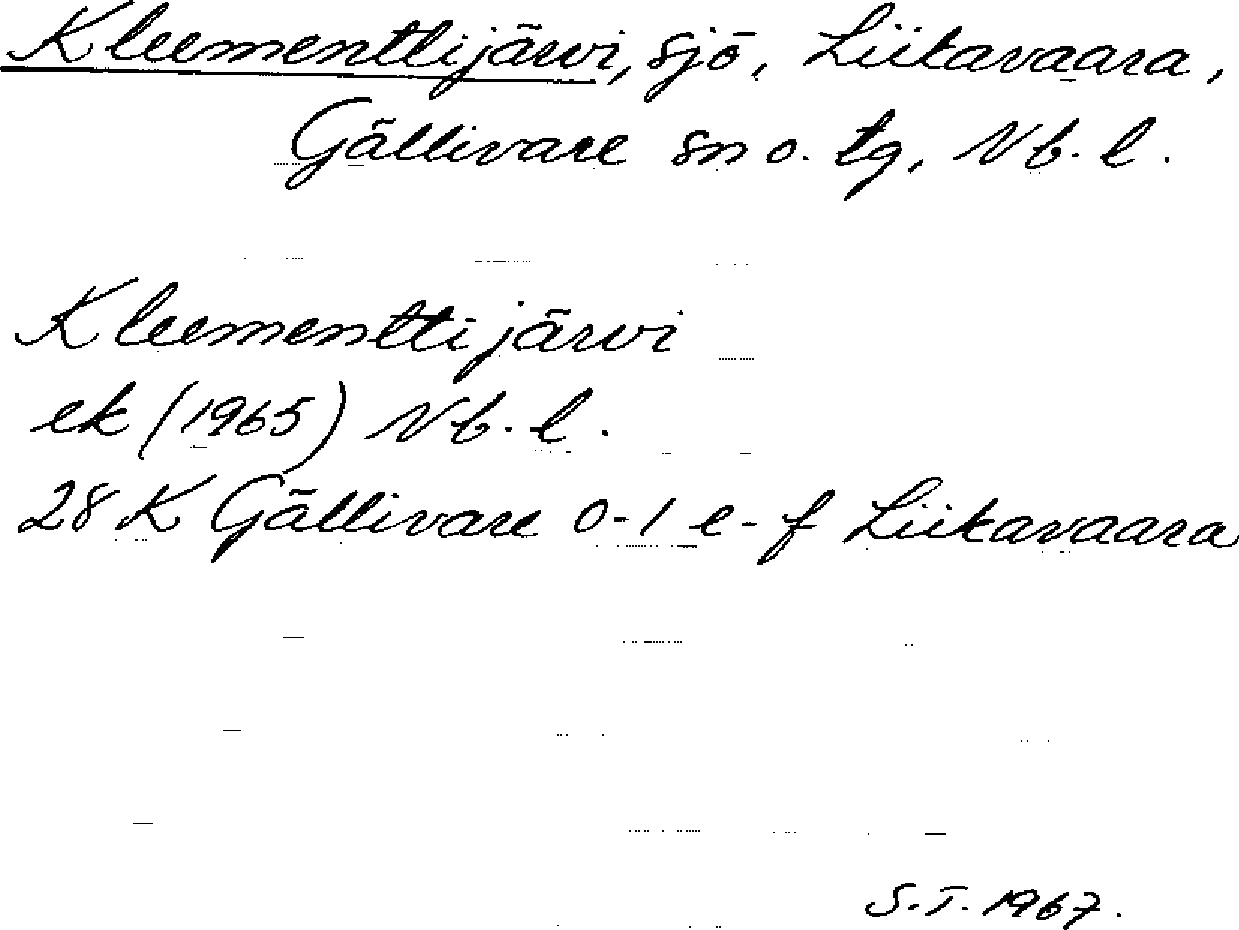 Kleementtijärvi, sjö, Liikavaara,
Gällivare sn o. tg, Nb. l.
Kleementtijärvi
ek (1965) Nb. l.
28 K Gällivare 0-1 e-f Liikavaara
S.T. 1967.